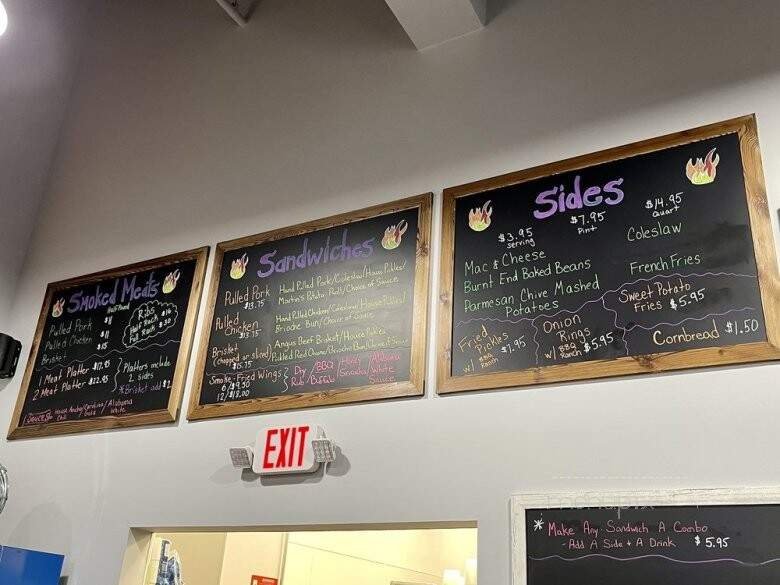 Smoked Meats
Half Pound
Pulled Pork
Pulled Chicken
Brisket $15
Ribs
Half Rack $16
Full Rack $30
1 Meat Platter $17.95
2 Meat Platter $22.95
Platters include
2 sides
*Brisket add $2
Alabama
White
Sandwiches
Pulled Pork
$13.75
Hand Pulled Pork/Coleslaw/House Pickles/
Martin's Potato Roll/Choice of Sauce
Pulled
Chicken
$13.75
Hand Pulled Chicken/Coleslaw/House Pickles/
Brioche Bun/Choice of Sauce
Brisket
(chopped or sliced)
$15.75
Angus Beef Brisket/House Pickles
Pickled Red Onions/Brioche Bun/Choice of Sauce
Smoke-Fried Wings
6/$9.50
12/$18.00
Dry
Rub
BBQ
Buffalo
Honey
Sriracha
Alabama
White
Sauce
Sides
$3.95
serving
$7.95
Pint
$14.95
Quart
Mac & Cheese
Burnt End Baked Beans
Parmesan Chive Mashed
Potatoes
Coleslaw
French Fries
Sweet Potato
Fries $5.95
Fried
Pickles
w/ BBQ
Ranch
Onion
Rings
w/ BBQ
Ranch $5.95
Cornbread $1.50
EXIT
* Make Any Sandwich A Combo
-Add A Side + A Drink $5.95